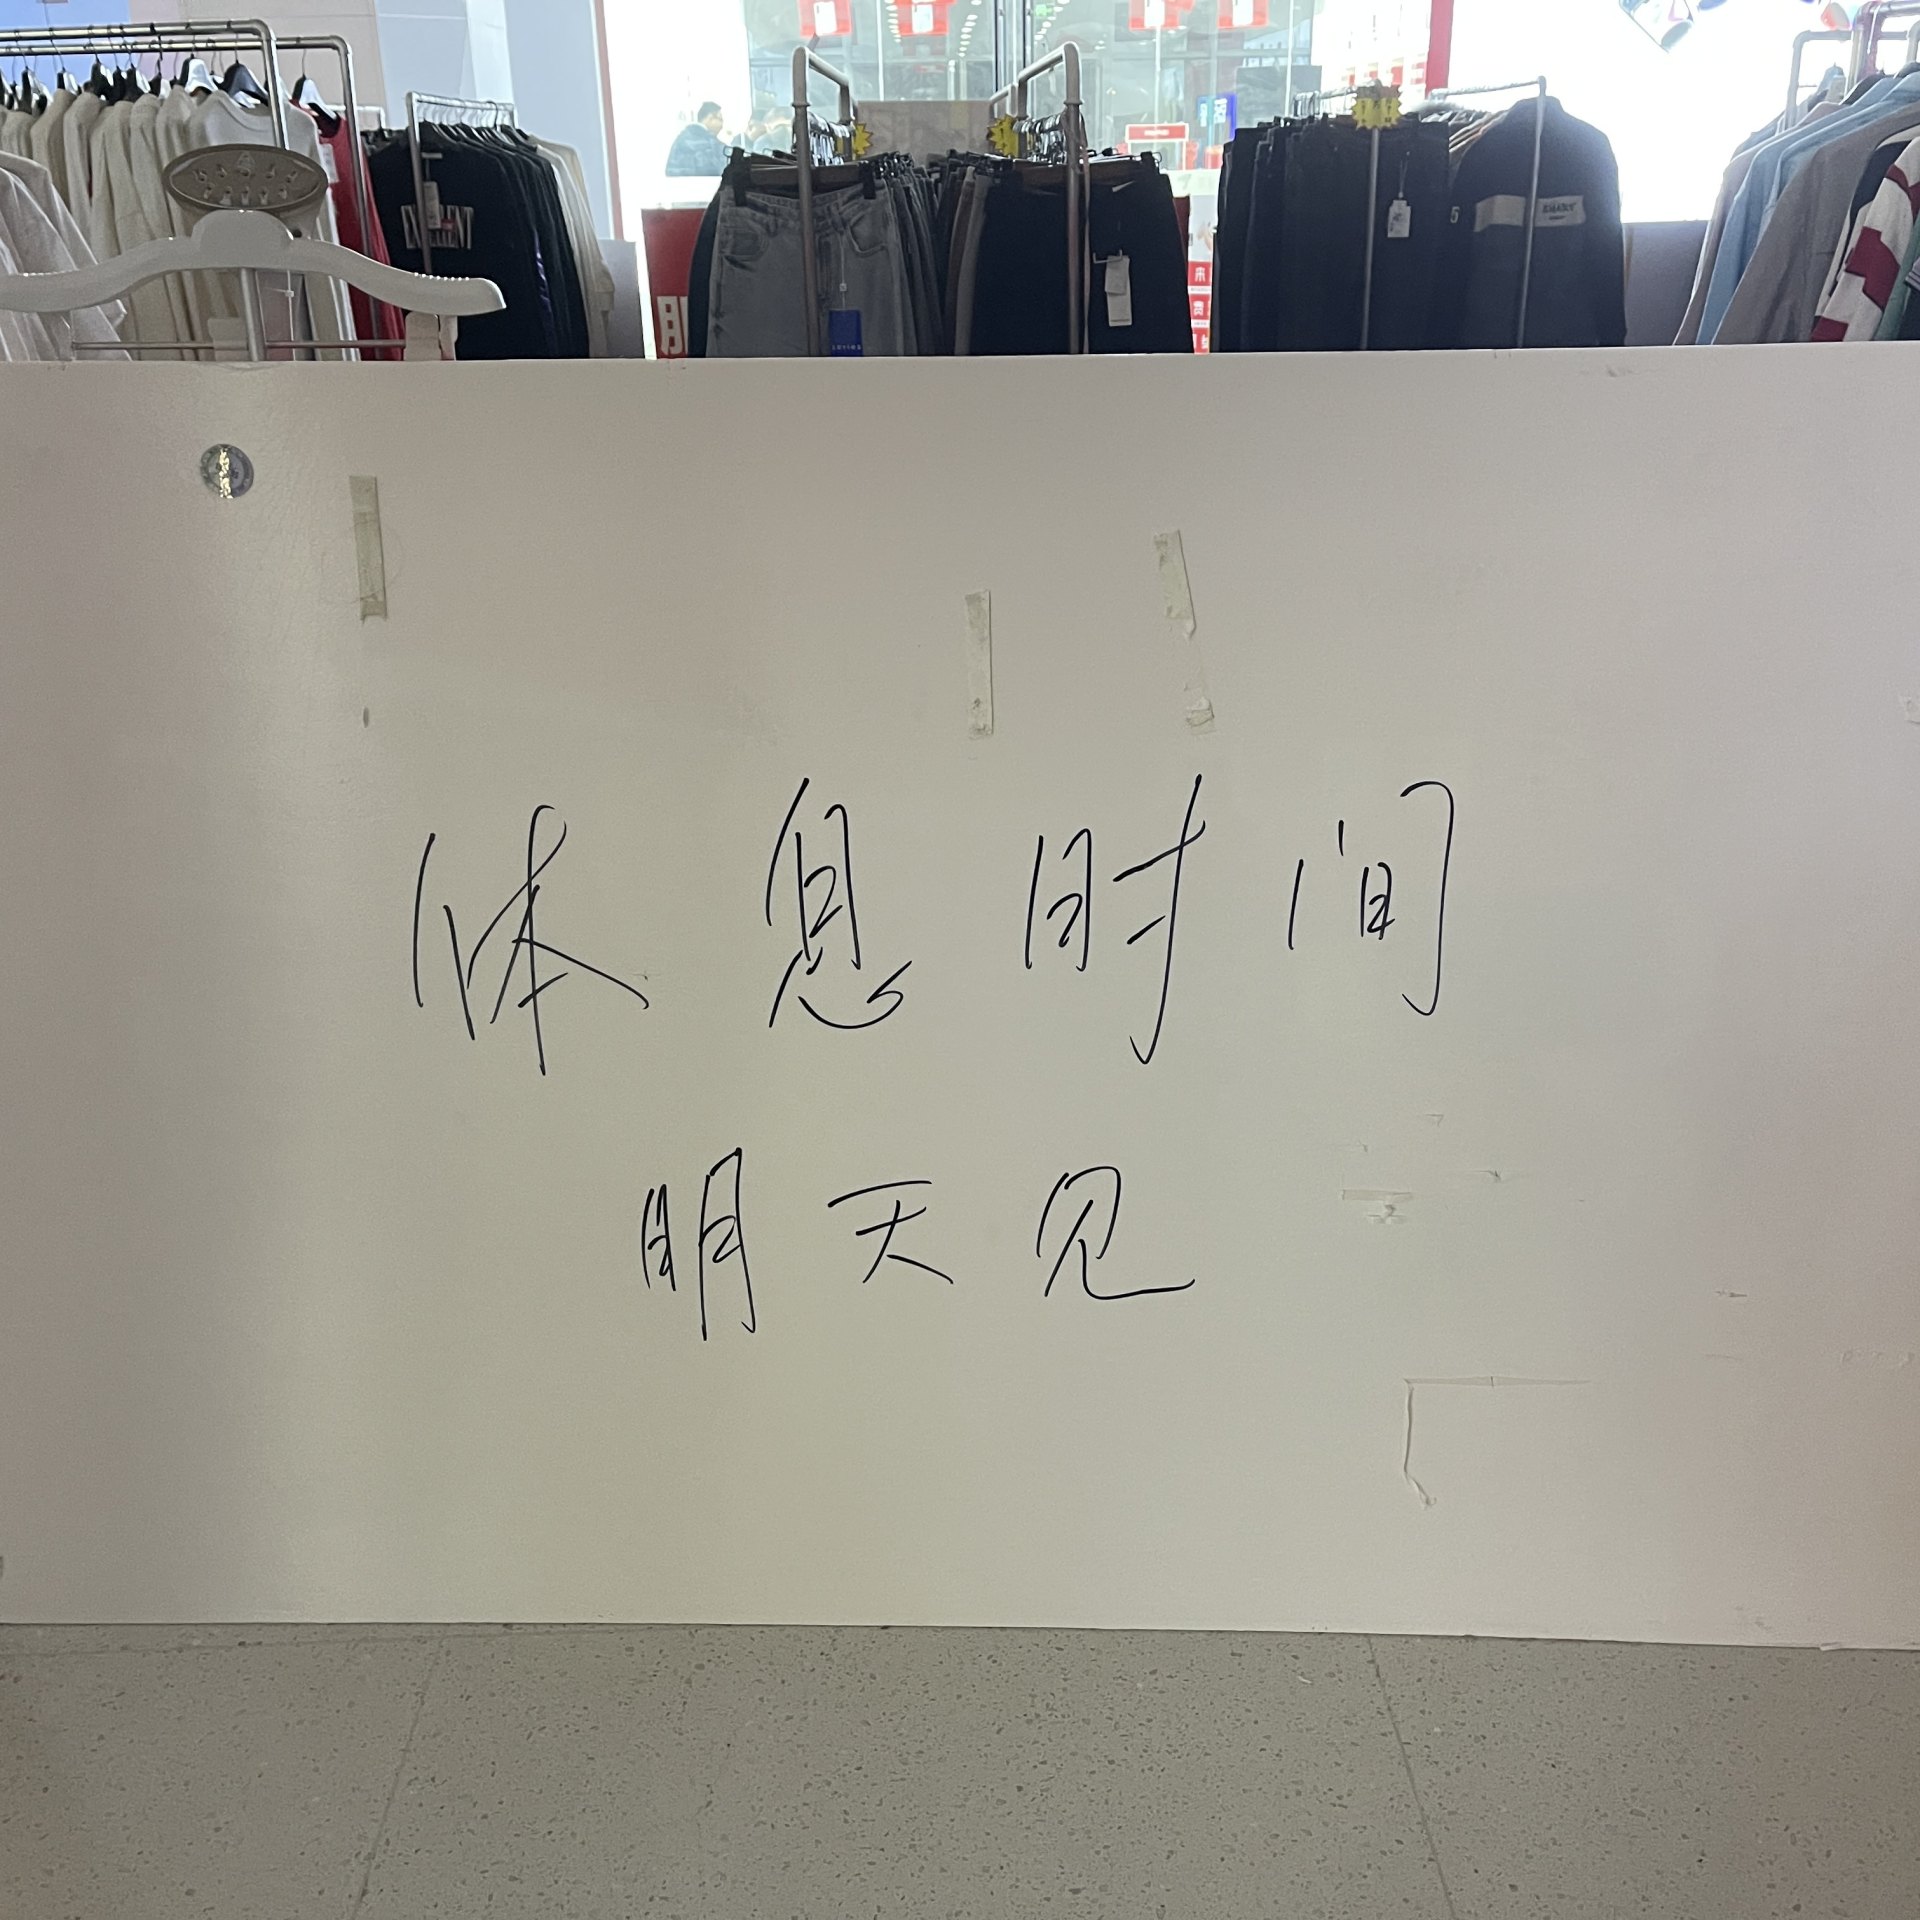 体息时间
明天见